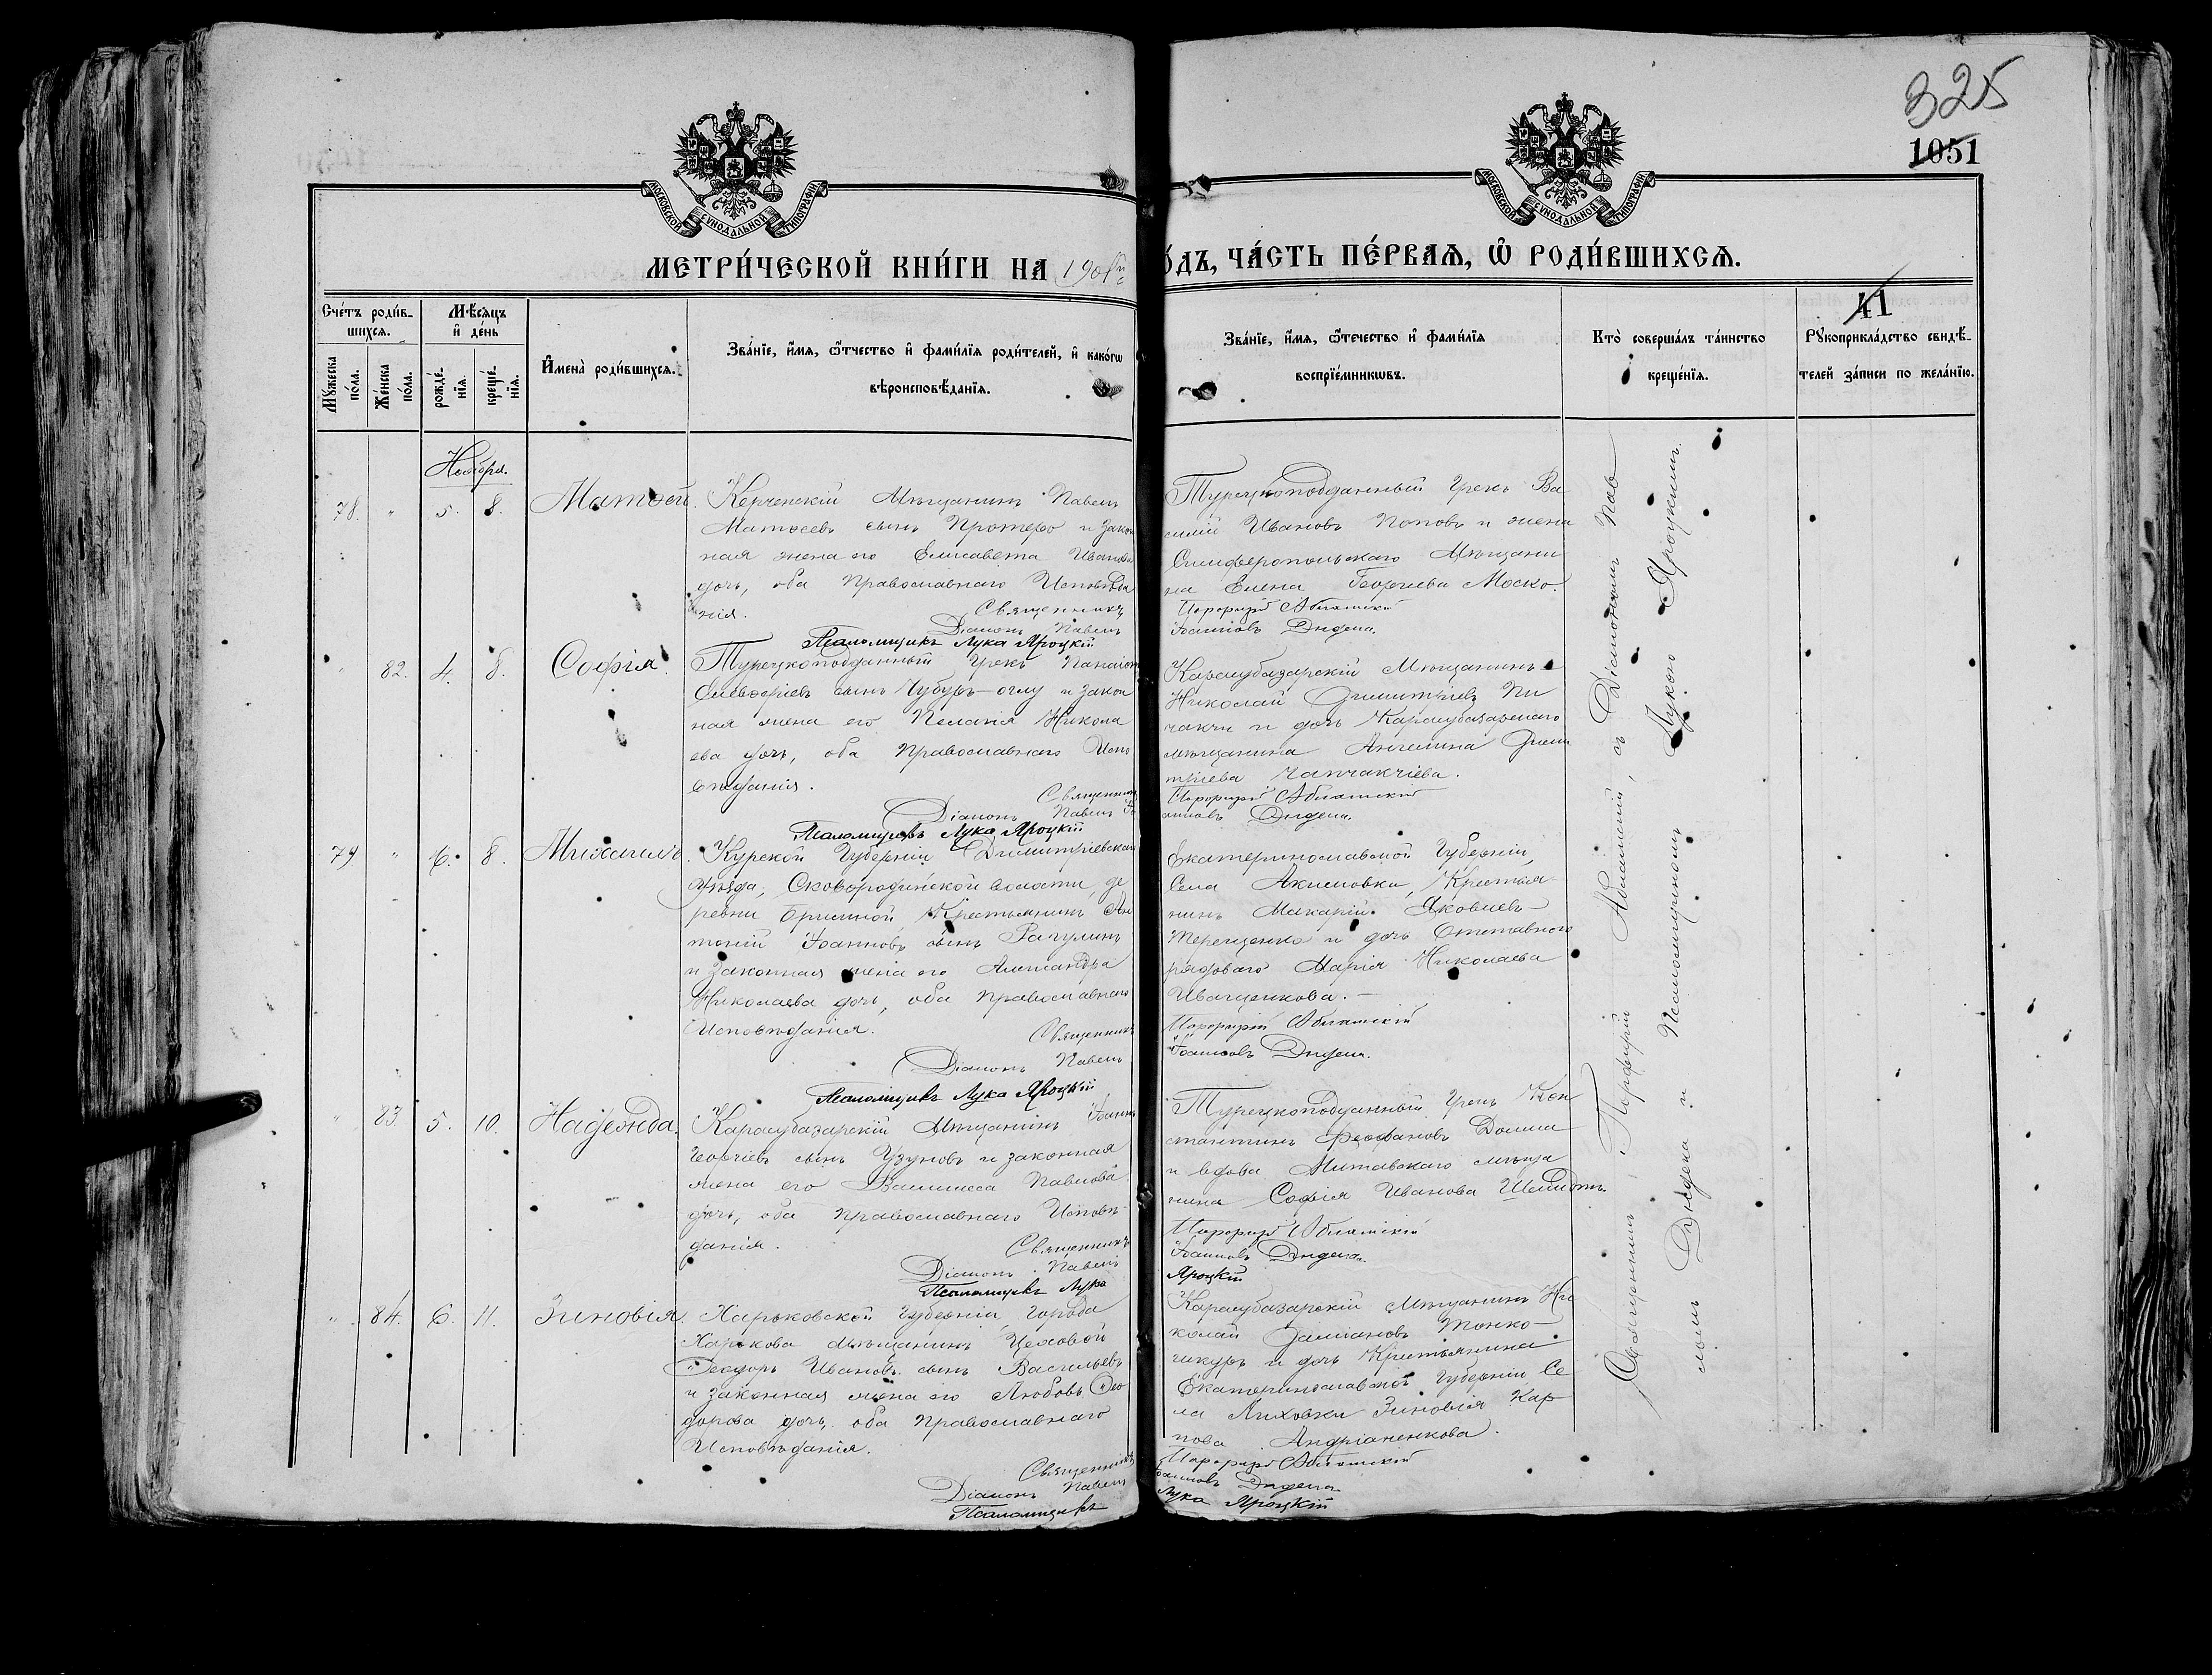 325
1051
МОСКОВСКОЙ СѴНОДАЛЬНОЙ ТИПОГРАФІИ
МОСКОВСКОЙ СѴНОДАЛЬНОЙ ТИПОГРАФІИ
МЕТРИ́ЧЕСКОЙ КНИ́ГИ НА 190
О́ДЪ, ЧА́СТЬ ПЕ́РВАѦ, Ѽ РОДИ́ВШИХСѦ.
41
Сче́тъ роди́в-
шихсѧ.
Мꙋ́жеска по́ла.
Же́нска по́ла.
Мѣ́сѧцъ
и҆ де́нь
рожде́-
нїѧ.
креще́-
нїѧ.
И҆мена̀ роди́вшихсѧ.
Зва́нїе, и҆́мѧ, ѻ҆́тчество и҆ фами́лїѧ роди́телей, и҆ како́гѡ
вѣроисповѣ́данїѧ.
Зва́нїе, и҆́мѧ, ѻ҆́течество и҆ фами́лїѧ
воспрїе́мникѡвъ.
Кто̀ соверша́лъ та́инство
креще́нїѧ.
Рꙋкоприкла́дство свидѣ́-
телей за́писи по жела́нїю.
Ноября.
78. " 5. 8. Матѳей.
Керченскій Мѣщанинъ Павелъ
Матѳеевъ сынъ Протеро и закон
ная жена его Елисавета Иванова
дочь, оба Православнаго Исповѣда
нія.
Священникъ
Діаконъ Павелъ
Псаломщикъ Лука Яроцкій
Турецкоподданный Грекъ Ва
силій Ивановъ Поповъ и жена
Симферопольскаго Мѣщани
на Елена Георгіева Моско.
Порфирій Абламскій
Іоанновъ Дидела.
" 82. 4. 8. Софія.
Турецкоподданный Грекъ Панаіот
Елевѳеріевъ сынъ Чубуръ-оглу и закон
ная жена его Пелагія Никола
ева дочь, оба Православнаго Испо
вѣданія.
Священникъ
Діаконъ Павелъ
Псаломщикъ Лука Яроцкій
Карасубазарскій Мѣщанинъ
Николай Димитріевъ Пи
чакчи и дочь Карасубазарскаго
мѣщанина Ангелина Дими
тріева Чапчакчіева.
Порфирій Абламскій
анновъ Дидела.
79 " 6. 8. Михаилъ.
Курской Губерніи Димитріевскаго
Уѣзда, Сковородинской волости, де
ревни Крестьянинъ Ан
тоній Іоанновъ сынъ Рагулинъ
и законная жена его Александра
Николаева дочь, оба Православнаго
Исповѣданія.
Священникъ
Діаконъ Павелъ
Псаломщикъ Лука Яроцкій
Екатеринославской Губерніи,
Села Акимовки, Крестья-
нинъ Макарій Яковлевъ
Терещенко и дочь Отставного
рядового Марія Николаева
Иващенкова.
Порфирій Абламскій
Іоанновъ Дидела.
" 83. 5. 10. Надежда.
Карасубазарскій Мѣщанинъ Іоаннъ
Георгіевъ сынъ Узуновъ и законная
жена его Василисса Павлова
дочь, оба Православнаго Исповѣ-
данія.
Священникъ
Діаконъ Павелъ
Псаломщикъ Лука
Турецкоподданный Грекъ Кон
стантинъ Ѳеофановъ Долма
и вдова Митавскаго мѣща
нина Софія Иванова
Порфирій Абламскій
Іоанновъ Дидела
Яроцкій
" 84. 6. 11. Зиновія.
Харьковской Губерніи, города
Харькова мѣщанинъ Цеховой
Ѳеодоръ Ивановъ сынъ Васильевъ
и законная жена его Любовь Ѳео
дорова дочь, оба Православнаго
Исповѣданія.
Священникъ
Діаконъ Павелъ
Псаломщикъ
Карасубазарскій Мѣщанинъ Ни
колай Даміановъ Тонко-
чикуръ и дочь Крестьянина
Екатеринославской Губерніи, Се
ла Лиховки Зиновія Кар
пова Андріаненкова.
Порфирій Абламскій
анновъ Дидела
Лука Яроцкій
Священникъ Порфирій Абламскій, съ Діакономъ Пав
ломъ Дидела и Псаломщикомъ Лукою Яроцкимъ.